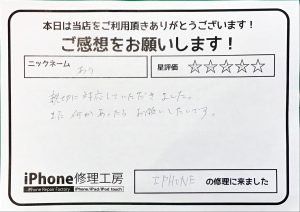 本日は当店をご利用頂きありがとうございます！
ご感想をお願いします！
ニックネーム
あり
星評価 ☆☆☆☆☆
親切に対応していただきました。
また何かあったらお願いしたいです。
iPhone修理工房
iPhone Repair Factory iPhone/iPad/iPod touch
IPHONE の修理に来ました